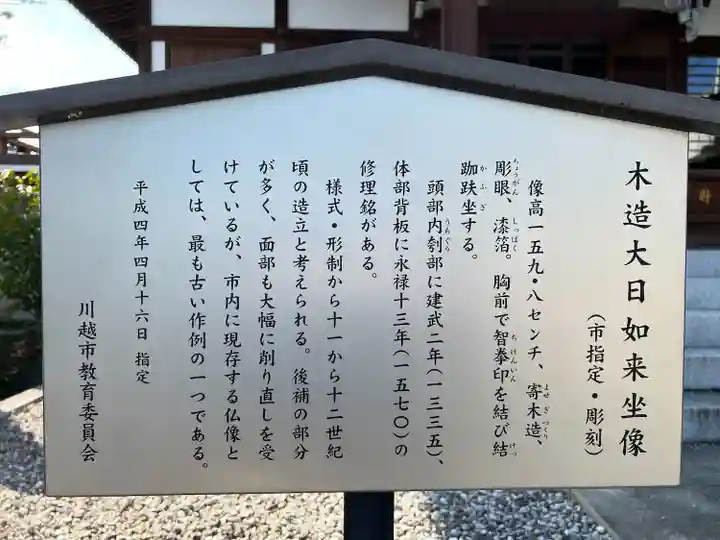 木造大日如来坐像
(市指定・彫刻)
像高一五九・八センチ、寄木造、
彫眼、漆箔。胸前で智拳印を結び結
跏趺坐する。
頭部内刳部に建武二年(一三三五)、
体部背板に永禄十三年(一五七〇)の
修理銘がある。
様式・形制から十一から十二世紀
頃の造立と考えられる。後補の部分
が多く、面部も大幅に削り直しを受
けているが、市内に現存する仏像と
しては、最も古い作例の一つである。
平成四年四月十六日 指定
川越市教育委員会